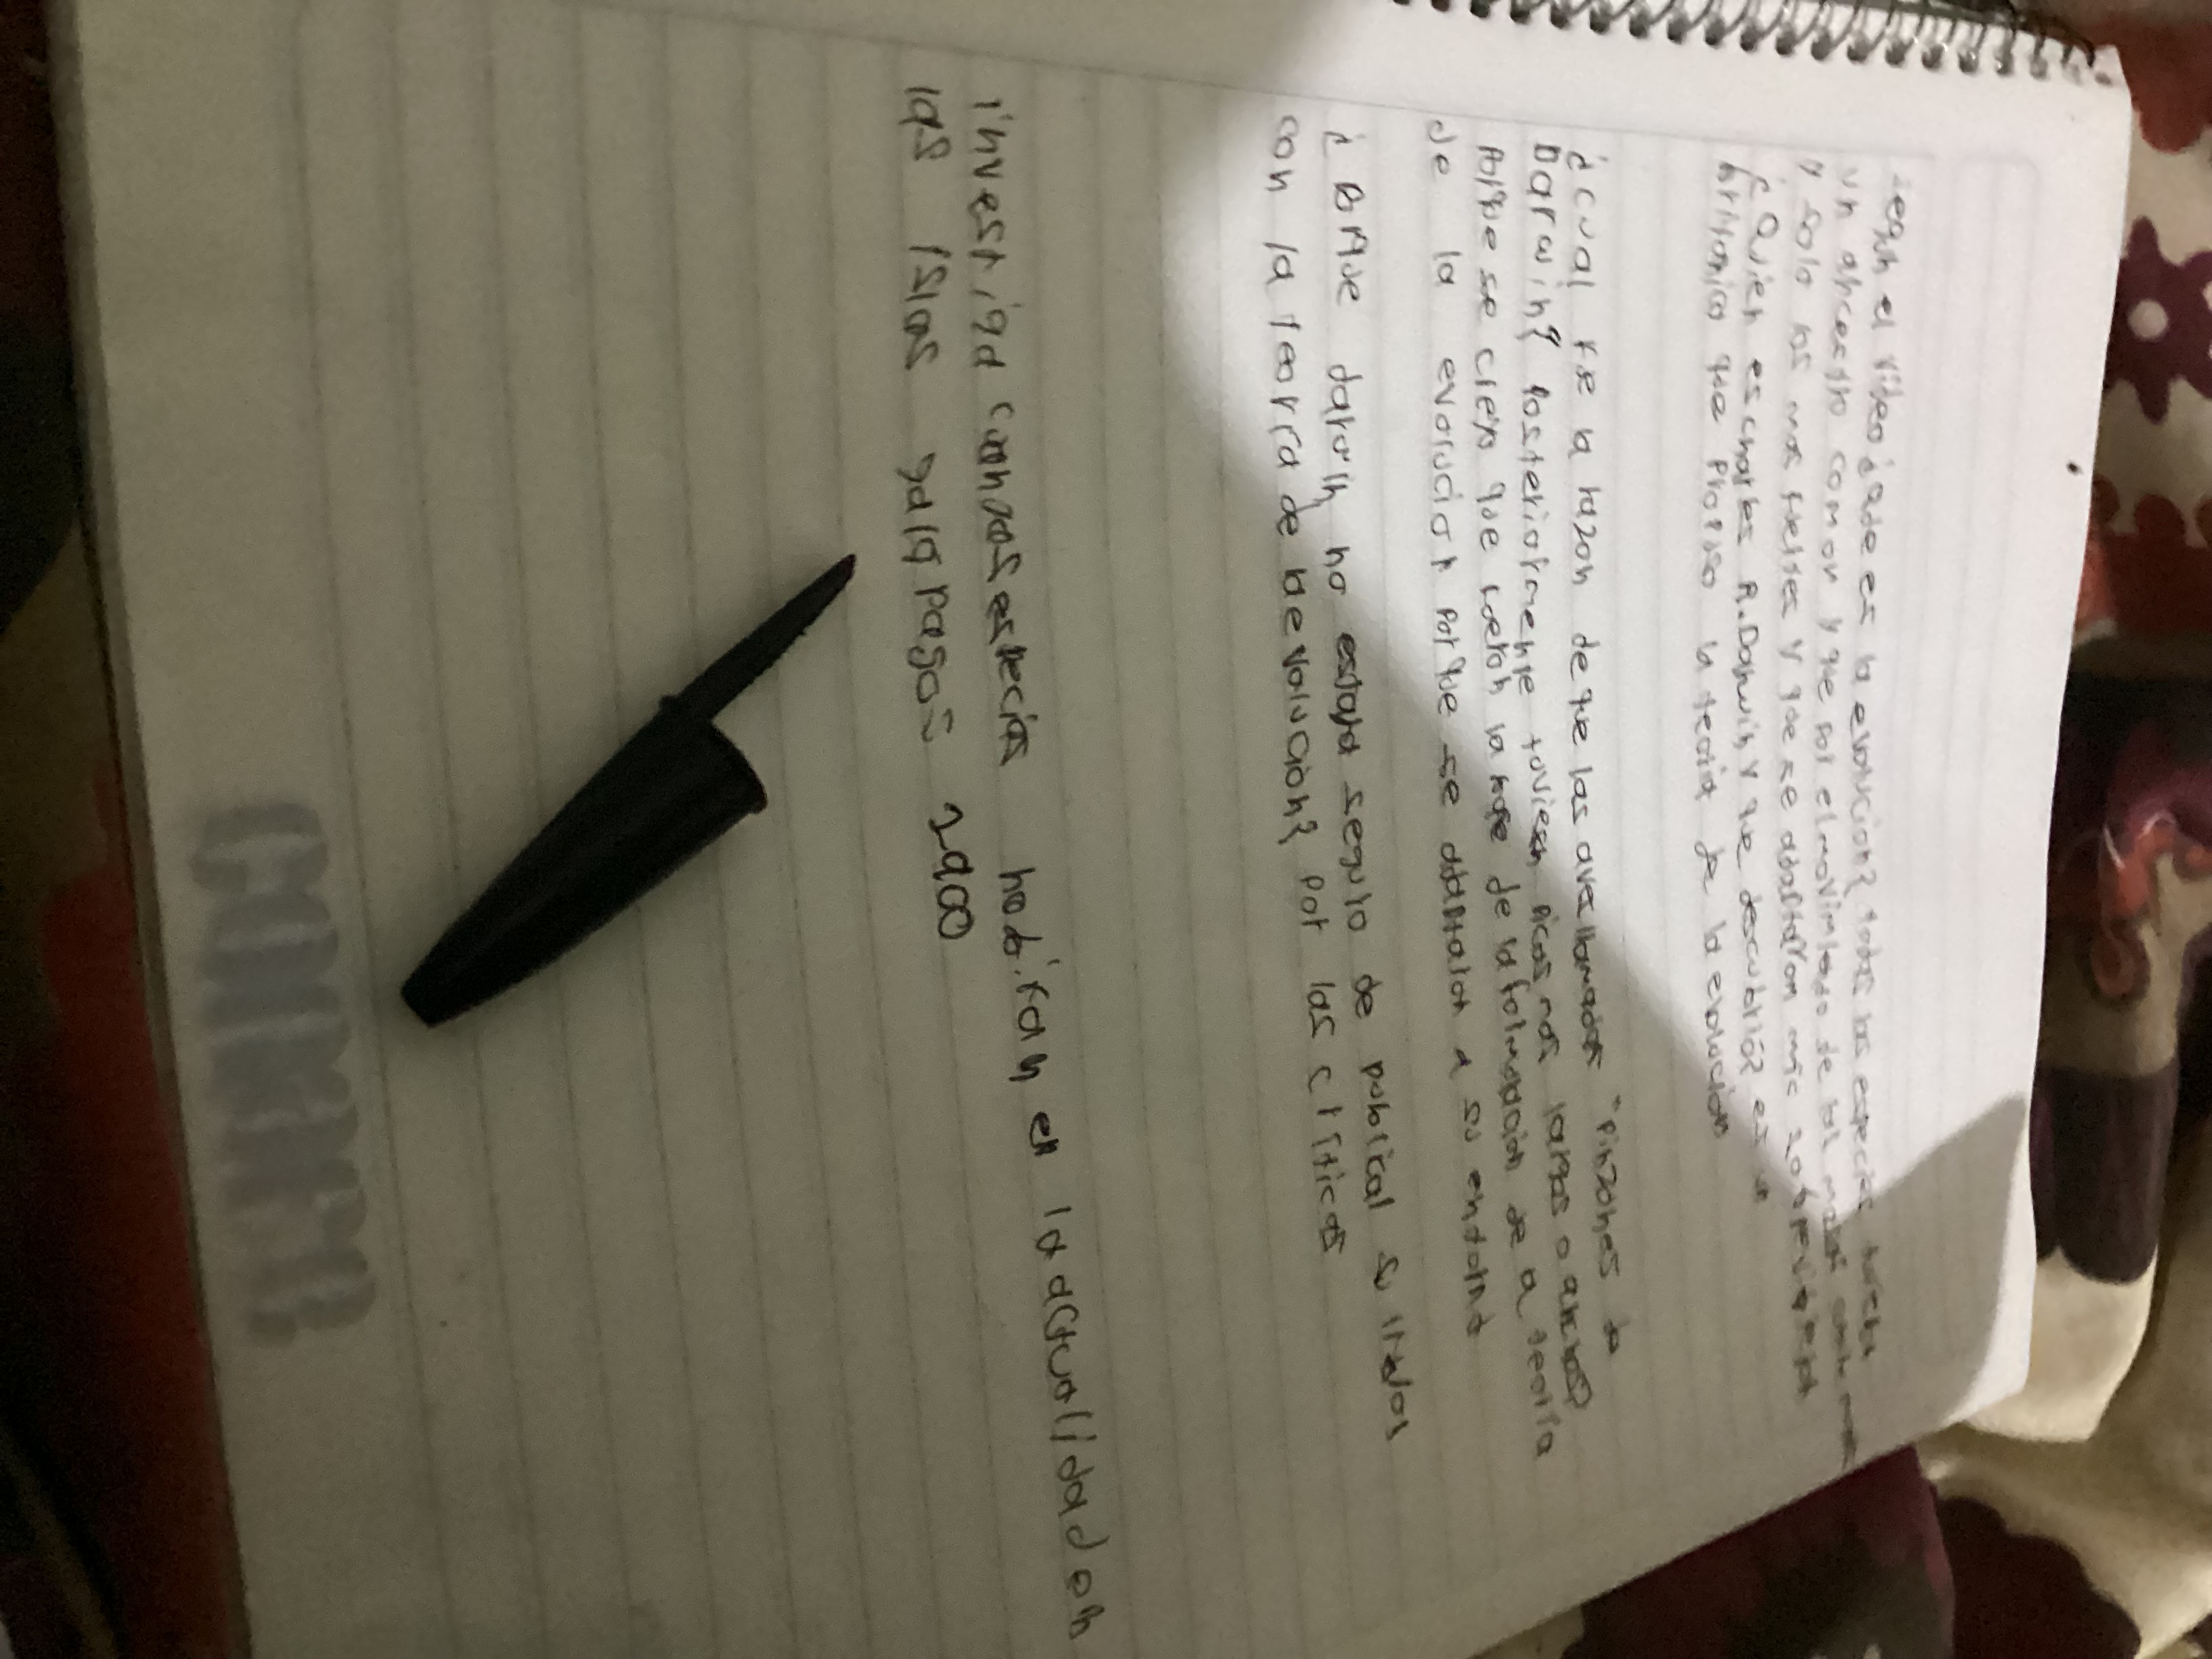 según el video ¿que es la evolucion? todas las especies
un ancestro comun y que por el movimiento de las
y solo las mas fuertes y que se adaptaron
¿Quien es charles R. Darwin y que descubrió? es un
britanico que propuso la teoria de la evolucion
¿cual fue la razon de que las aves llamadas "pinzones de
Darwin? posteriormente tuviesen picos mas largos o anchos?
porque se creyo que serian la base de la formacion de a teoria
de la evolucion porque se adaptaron a su entorno
¿porque darwin no estaba seguro de publicar su
con la teoria de la evolucion? por las criticas
investiga cuantas especies habitan en la actualidad en
las islas galapagos 2900